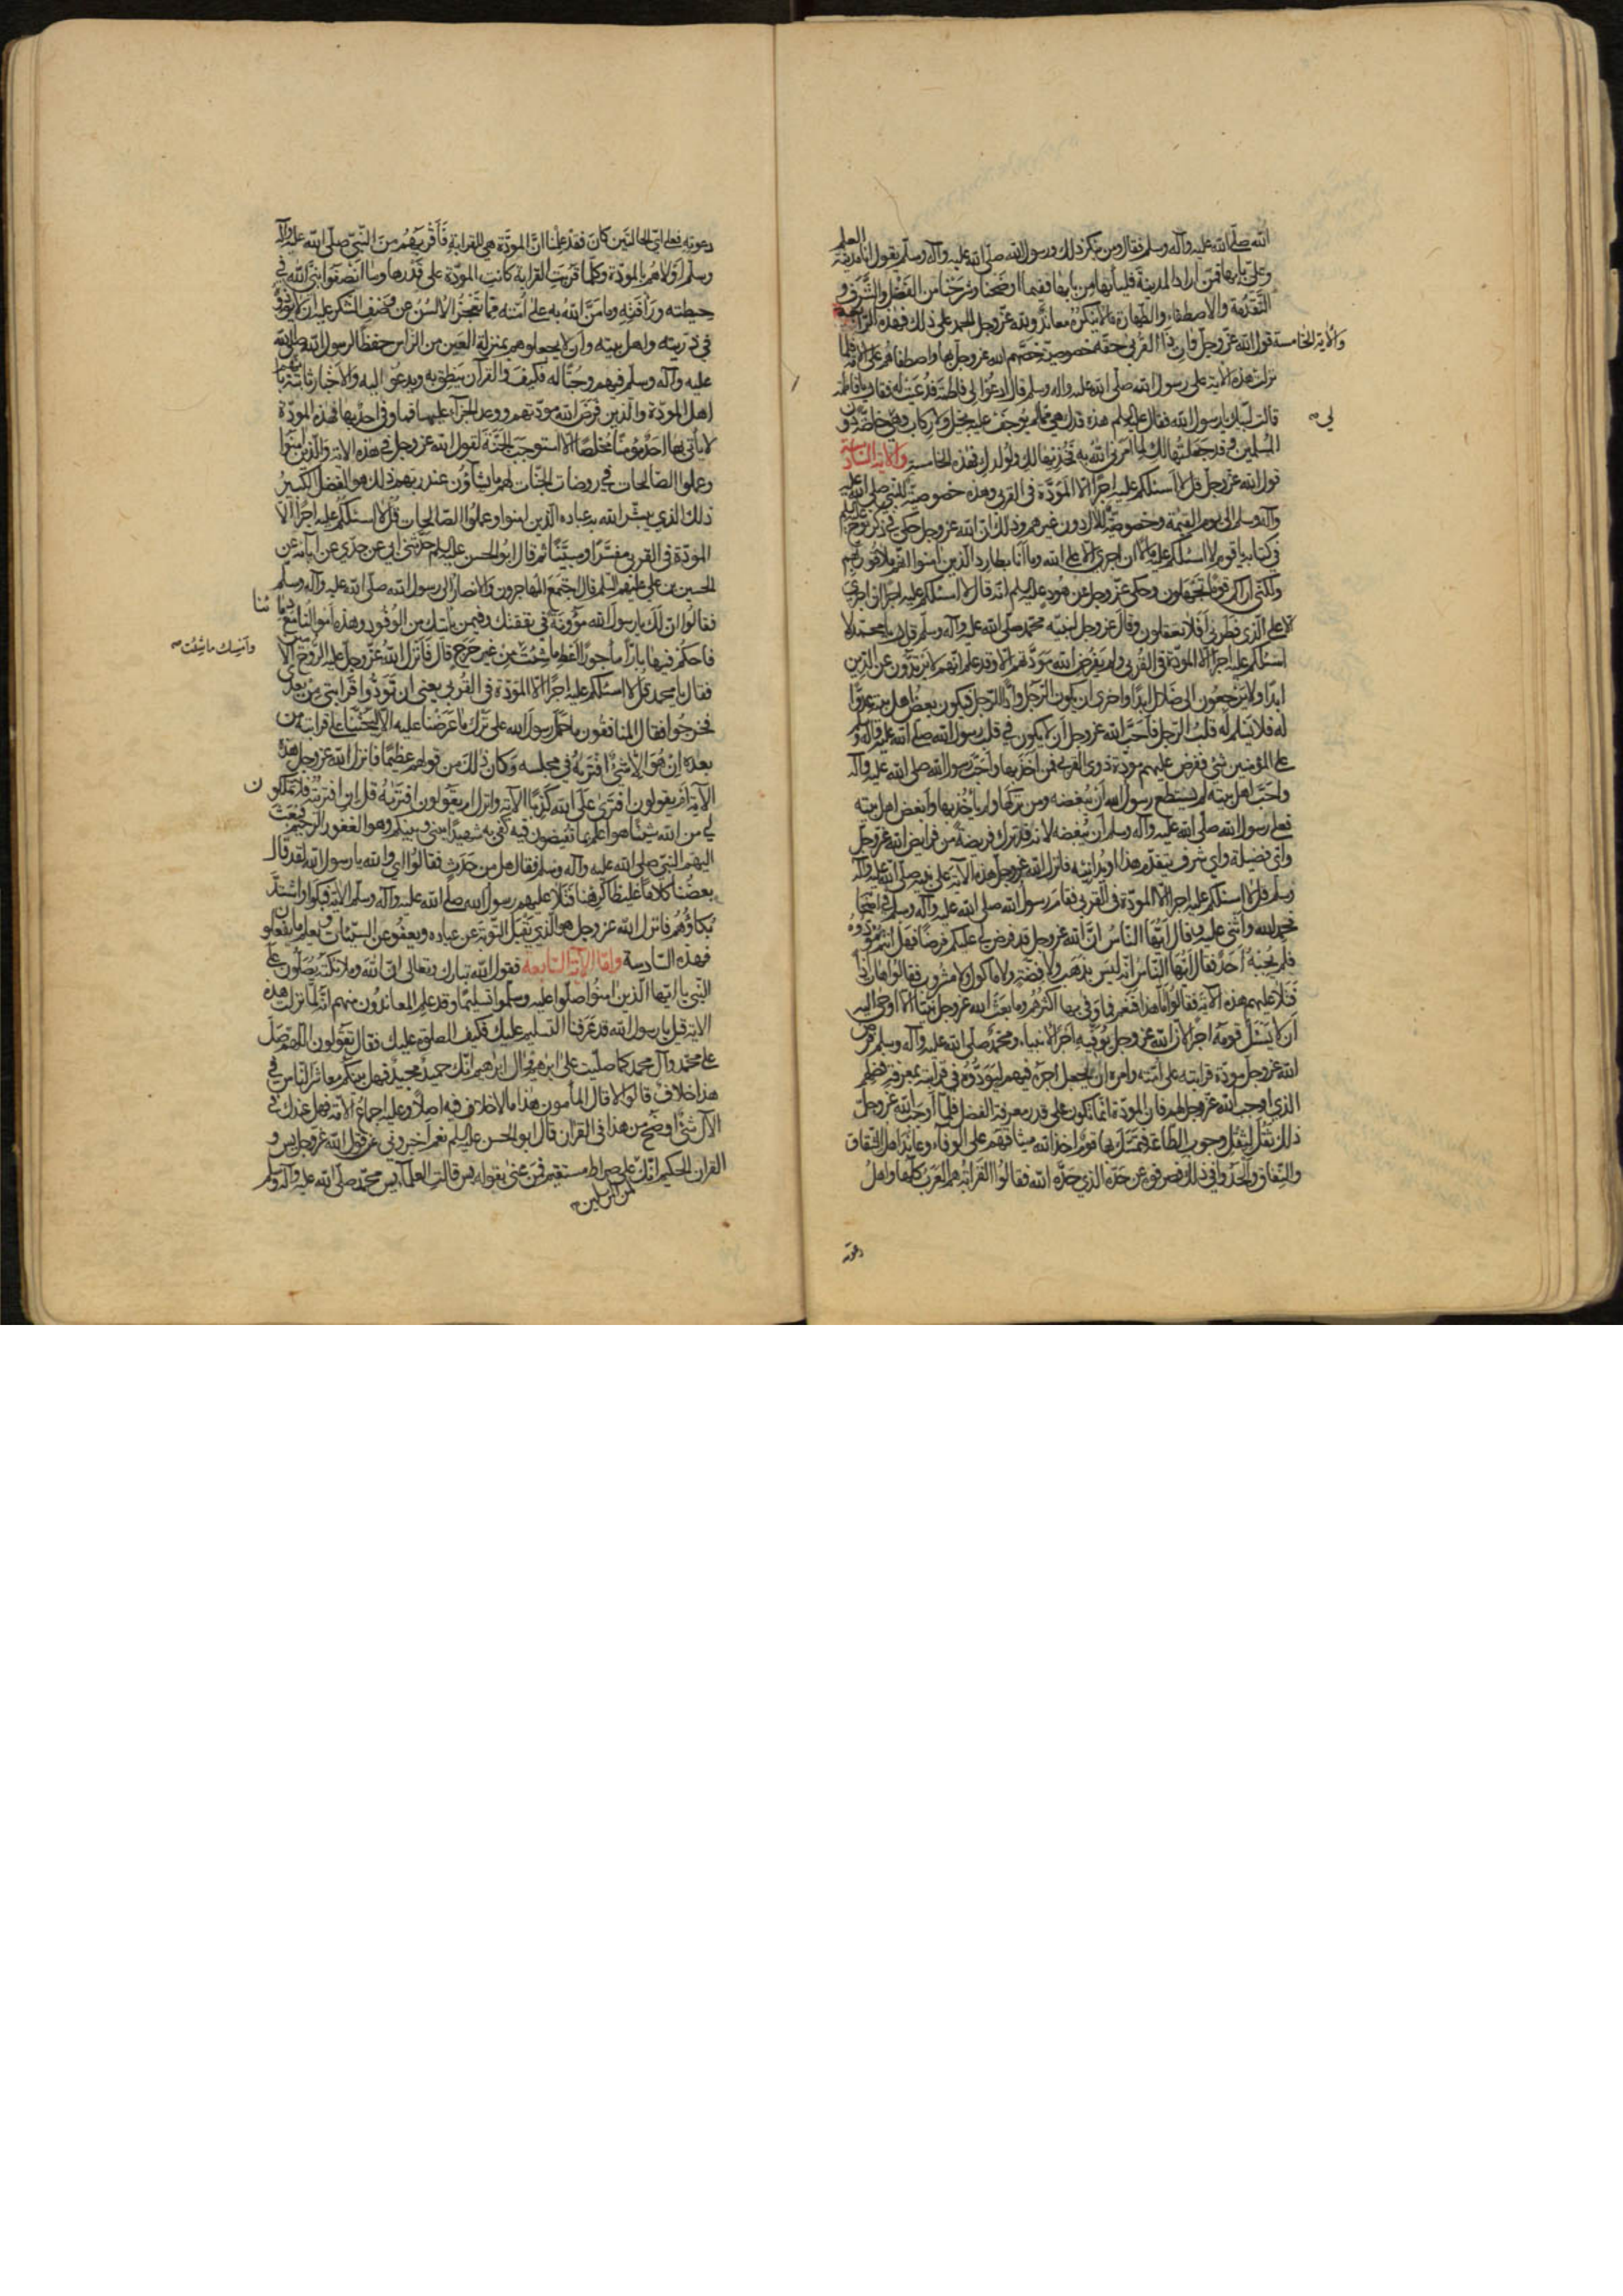 الله صلى الله عليه وآله وسلم فقال ومن ينكر ذلك ورسول الله صلى الله عليه وآله وسلم يقول انا مدينة العلم
وعلي بابها فمن اراد المدينة فليأتها من بابها ففيما اوضحنا وشرحنا من الفضل والشرف و
التقدمة والاصطفاء والطهارة ما لا ينكره معاند ولله عز وجل الحمد على ذلك فهذه الرابعة
والآية الخامسة قول الله عز وجل وآت ذا القربى حقه خصوصية خصهم الله عز وجل بها واصطفاهم على الامة فلما
نزلت هذه الآية على رسول الله صلى الله عليه وآله وسلم قال ادعوا لي فاطمة فدعيت له فقال يا فاطمة
قالت لبيك يا رسول الله فقال عليه السلم هذه فدك هي مما لم يوجف عليه بخيل ولا ركاب وهي لي خاصة دون
المسلمين وقد جعلتها لك لما امرني الله به فخذيها لك ولولدك فهذه الخامسة والآية السادسة
قول الله عز وجل قل لا اسئلكم عليه اجرا الا المودة في القربى وهذه خصوصية للنبي صلى الله عليه
وآله وسلم الى يوم القيمة وخصوصية للآل دون غيرهم وذلك ان الله عز وجل حكى في ذكر نوح عليه السلم
في كتابه يا قوم لا اسئلكم عليه مالا ان اجري الا على الله وما انا بطارد الذين امنوا انهم ملاقوا ربهم
ولكني اراكم قوما تجهلون وحكى عز وجل عن هود عليه السلم انه قال لا اسئلكم عليه اجرا ان اجري
الا على الذي فطرني افلا تعقلون وقال عز وجل لنبيه محمد صلى الله عليه وآله وسلم قل يا محمد لا
اسئلكم عليه اجرا الا المودة في القربى ولم يفرض الله مودتهم الا وقد علم انهم لا يرتدون عن الدين
ابدا ولا يرجعون الى ضلال ابدا واخرى ان يكون الرجل وادا للرجل فيكون بعض اهل بيته عدوا
له فلا يسلم له قلب الرجل فاحب الله عز وجل ان لا يكون في قلب رسول الله صلى الله عليه وآله وسلم
على المؤمنين شئ ففرض عليهم مودة ذوي القربى فمن اخذ بها واحب رسول الله صلى الله عليه وآله
واحب اهل بيته لم يستطع رسول الله ان يبغضه ومن تركها ولم يأخذ بها وابغض اهل بيته
فعلى رسول الله صلى الله عليه وآله وسلم ان يبغضه لانه قد ترك فريضة من فرايض الله عز وجل
واي فضيلة واي شرف يتقدم هذا او يدانيه فانزل الله عز وجل هذه الآية على نبيه صلى الله عليه وآله
وسلم قل لا اسئلكم عليه اجرا الا المودة في القربى فقام رسول الله صلى الله عليه وآله وسلم في اصحابه
فحمد الله واثنى عليه وقال ايها الناس ان الله عز وجل قد فرض لي عليكم فرضا فهل انتم مؤدوه
فلم يجبه احد فقال ايها الناس انه ليس بذهب ولا فضة ولا مأكول ولا مشروب فقالوا هات اذا
فتلا عليهم هذه الآية فقالوا اما هذا فنعم فما وفى بها اكثرهم وما بعث الله عز وجل نبيا الا اوحى اليه
ان لا يسئل قومه اجرا لان الله عز وجل يوفيه اجر الانبياء ومحمد صلى الله عليه وآله وسلم فرض
الله عز وجل مودة قرابته على امته وامره ان يجعل اجره فيهم ليودوه في قرابته بمعرفة فضلهم
الذي اوجب الله عز وجل لهم فان المودة انما تكون على قدر معرفة الفضل فلما اوجب الله عز وجل
ذلك ثقل لثقل وجوب الطاعة فتمسك بها قوم اخذ الله ميثاقهم على الوفاء وعاند اهل الشقاق
والنفاق والحدوا في ذلك فصرفوه عن حده الذي حده الله فقالوا القرابة هم العرب كلها واهل
دعوته
دعوته فعلى اي الحالتين كان فقد علمنا ان المودة هي للقرابة فاقربهم من النبي صلى الله عليه وآله
وسلم اولاهم بالمودة وكلما قربت القرابة كانت المودة على قدرها وما انصفوا نبي الله في
حيطته ورأفته وما من الله به على امته مما تعجز الالسن عن وصف الشكر عليه ان لا يؤذوه
في ذريته واهل بيته وان لا يجعلوهم بمنزلة العين من الراس حفظا لرسول الله صلى الله
عليه وآله وسلم فيهم وحبا له فكيف والقرآن ينطق به ويدعو اليه والاخبار ثابتة بانهم
اهل المودة والذين فرض الله مودتهم ووعد الجزاء عليها فما وفى احد بها فهذه المودة
لا يأتي بها احد مؤمنا مخلصا الا استوجب الجنة لقول الله عز وجل في هذه الآية والذين امنوا
وعملوا الصالحات في روضات الجنات لهم ما يشاؤن عند ربهم ذلك هو الفضل الكبير
ذلك الذي يبشر الله به عباده الذين امنوا وعملوا الصالحات قل لا اسئلكم عليه اجرا الا
المودة في القربى مفسرا ومبينا ثم قال ابو الحسن عليه السلم حدثني ابي عن جدي عن آبائه عن
الحسين بن علي عليهم السلم قال اجتمع المهاجرون والانصار الى رسول الله صلى الله عليه وآله وسلم
فقالوا ان لك يا رسول الله مؤونة في نفقتك وفيمن يأتيك من الوفود وهذه اموالنا مع دمائنا
فاحكم فيها بارا مأجورا اعط ما شئت من غير حرج قال فانزل الله عز وجل عليه الروح الا
وامسك ما شئت
فقال يا محمد قل لا اسئلكم عليه اجرا الا المودة في القربى يعني ان تودوا قرابتي من بعدي
فخرجوا فقال المنافقون ما حمل رسول الله على ترك ما عرضنا عليه الا ليحثنا على قرابته من
بعده ان هو الا شئ افتريه في مجلسه وكان ذلك من قولهم عظيما فانزل الله عز وجل هذه
الآية ام يقولون افترى على الله كذبا الآية وانزل ام يقولون افتريه قل ان افتريته فلا تملكون
لي من الله شيئا هو اعلم بما تفيضون فيه كفى به شهيدا بيني وبينكم وهو الغفور الرحيم فبعث
اليهم النبي صلى الله عليه وآله وسلم فقال هل من حدث فقالوا اي والله يا رسول الله لقد قال
بعضنا كلاما غليظا كرهنا فتلا عليهم رسول الله صلى الله عليه وآله وسلم الآية فبكوا واشتد
بكاؤهم فانزل الله عز وجل هو الذي يقبل التوبة عن عباده ويعفو عن السيئات ويعلم ما يفعلون
فهذه السادسة واما الآية السابعة فقول الله تبارك وتعالى ان الله وملائكته يصلون على
النبي يا ايها الذين امنوا صلوا عليه وسلموا تسليما وقد علم المعاندون منهم انه لما نزلت هذه
الآية قيل يا رسول الله قد عرفنا التسليم عليك فكيف الصلوة عليك فقال تقولون اللهم صل
على محمد وآل محمد كما صليت على ابرهيم وآل ابرهيم انك حميد مجيد فهل بينكم معاشر الناس في
هذا خلاف قالوا لا قال المأمون هذا ما لا خلاف فيه اصلا وعليه اجماع الامة فهل عندك في
الآل شئ اوضح من هذا في القرآن قال ابو الحسن عليه السلم نعم اخبروني عن قول الله عز وجل يس و
القرآن الحكيم انك لمن المرسلين على صراط مستقيم فمن عنى بقوله يس قالت العلماء يس محمد صلى الله عليه وآله وسلم